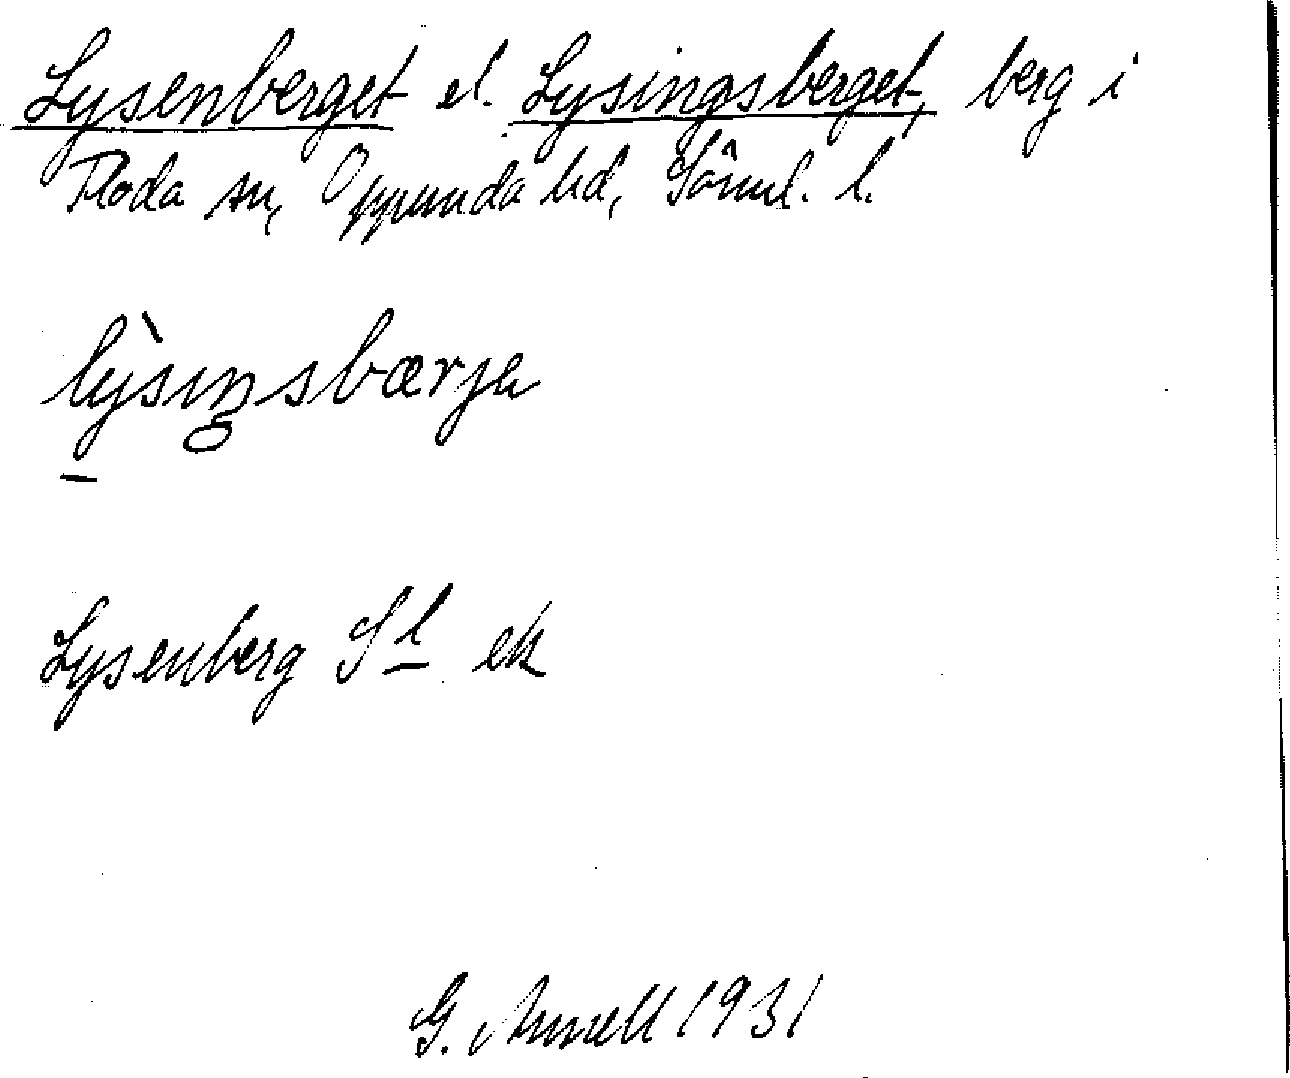 Lysenberget el. Lysingsberget, berg i
Floda sn, Oppunda hd, Söml. l.
lỳsiŋsbærja
Lysenberg S l ek
G. Annell 1931